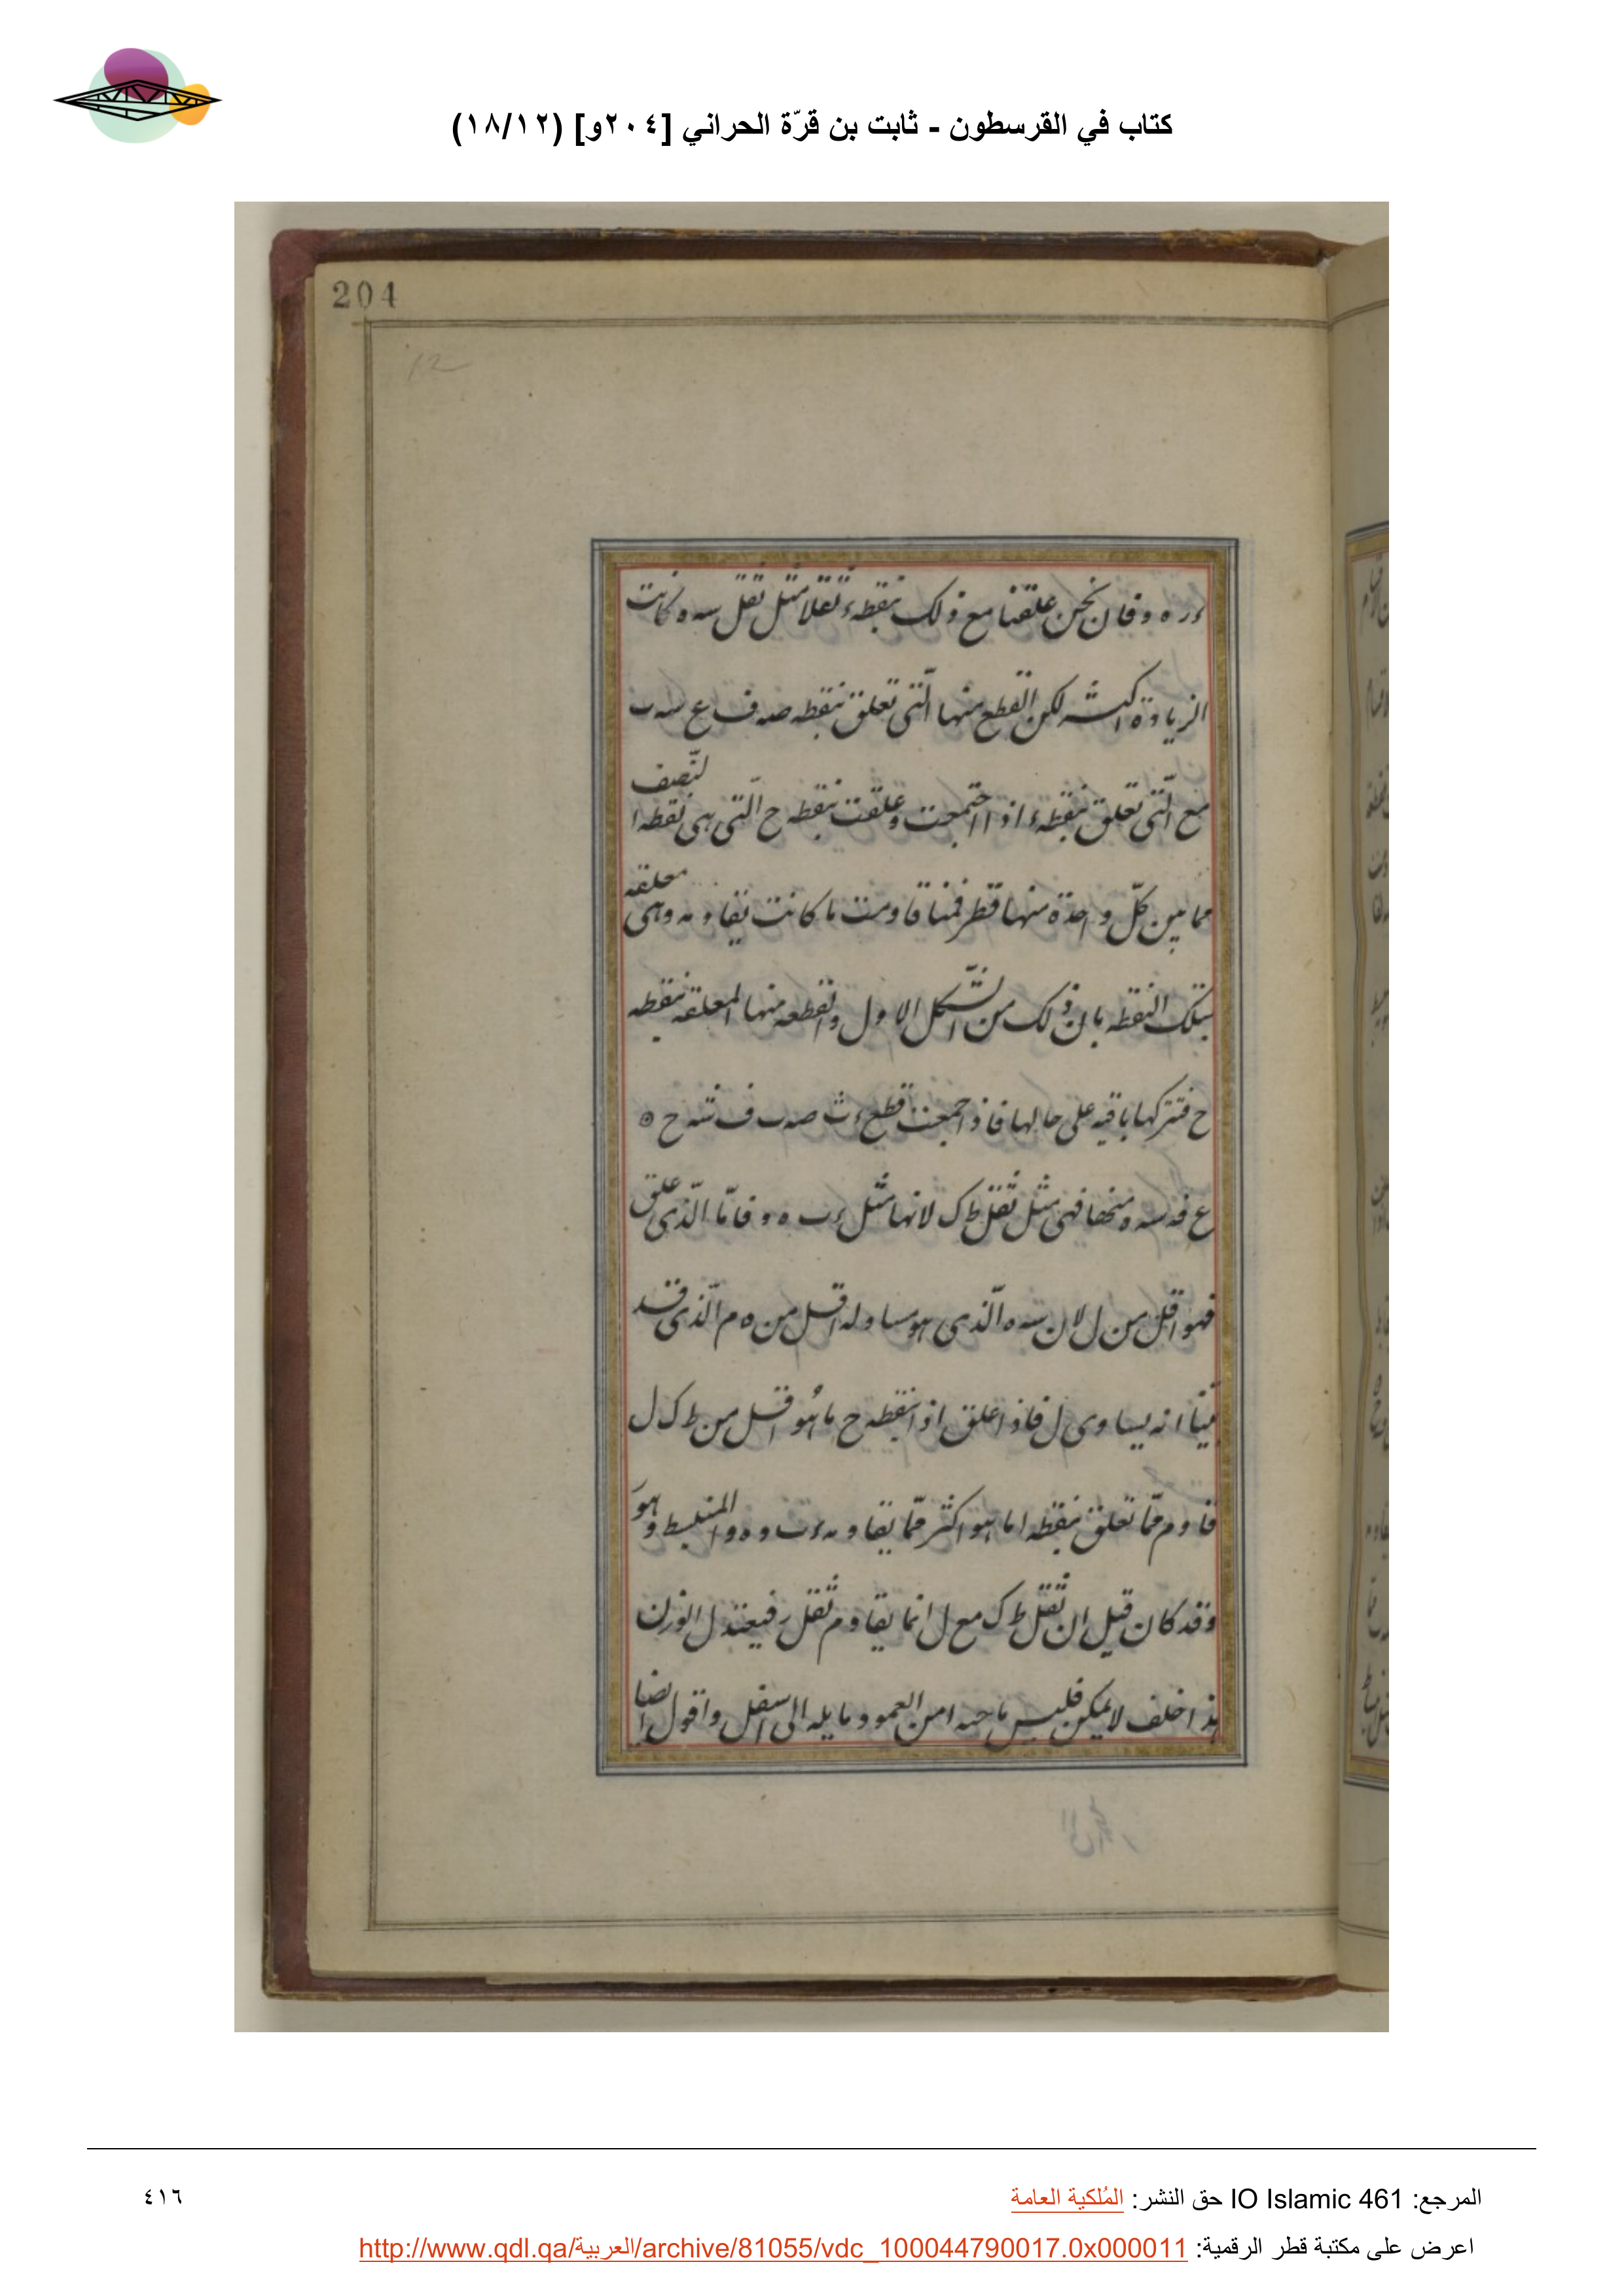 كتاب في القرسطون - ثابت بن قرّة الحراني [٢٠٤و] (١٨/١٢)
204
12
فان نحن علقنا مع ذلك بنقطه ء ثقلا مثل ثقل سه ه كانت
الزيادة اكثر لكن القطع منها الّتي تعلق بنقطه صه ف ع سه ب
مع الّتي تعلق بنقطه ء اذا اجتمعت وعلقت بنقطه ح الّتي هي نقطه النّصف
مما بين كلّ واحدة منها قاومت ما كانت تقاومه وهي معلقه
بتلك النقطه بان ذلك من الشّكل الاول والقطعه منها المعلقه بنقطه
ح فتركها باقيه على حالها فاذ اجمعت قطع
فهي مثل ثقل ط ك لانها مثل ء ب ه و فامّا الّذي علق
فهو اقل من ل لان سه ه الّذي هو مساو له اقل من ه م الّذي قد
بيّنا انه يساوي ل فاذا علق اذا بنقطه ح ما هو اقل من ط ك ل
قاوم ممّا تعلق بنقطه ا ما هو اكثر ممّا يقاومه ء ب و ه و المنبسط وهو
وقد كان قيل ان ثقل ط ك مع ل انما يقاوم ثقل ر فيعتدل الوزن
هذا خلف لا يمكن فليس ناحيه ا من العمود مايله الى اسفل واقول ايضا
المرجع: IO Islamic 461 حق النشر: المُلكية العامة
٤١٦
اعرض على مكتبة قطر الرقمية: http://www.qdl.qa/العربية/archive/81055/vdc_100044790017.0x000011